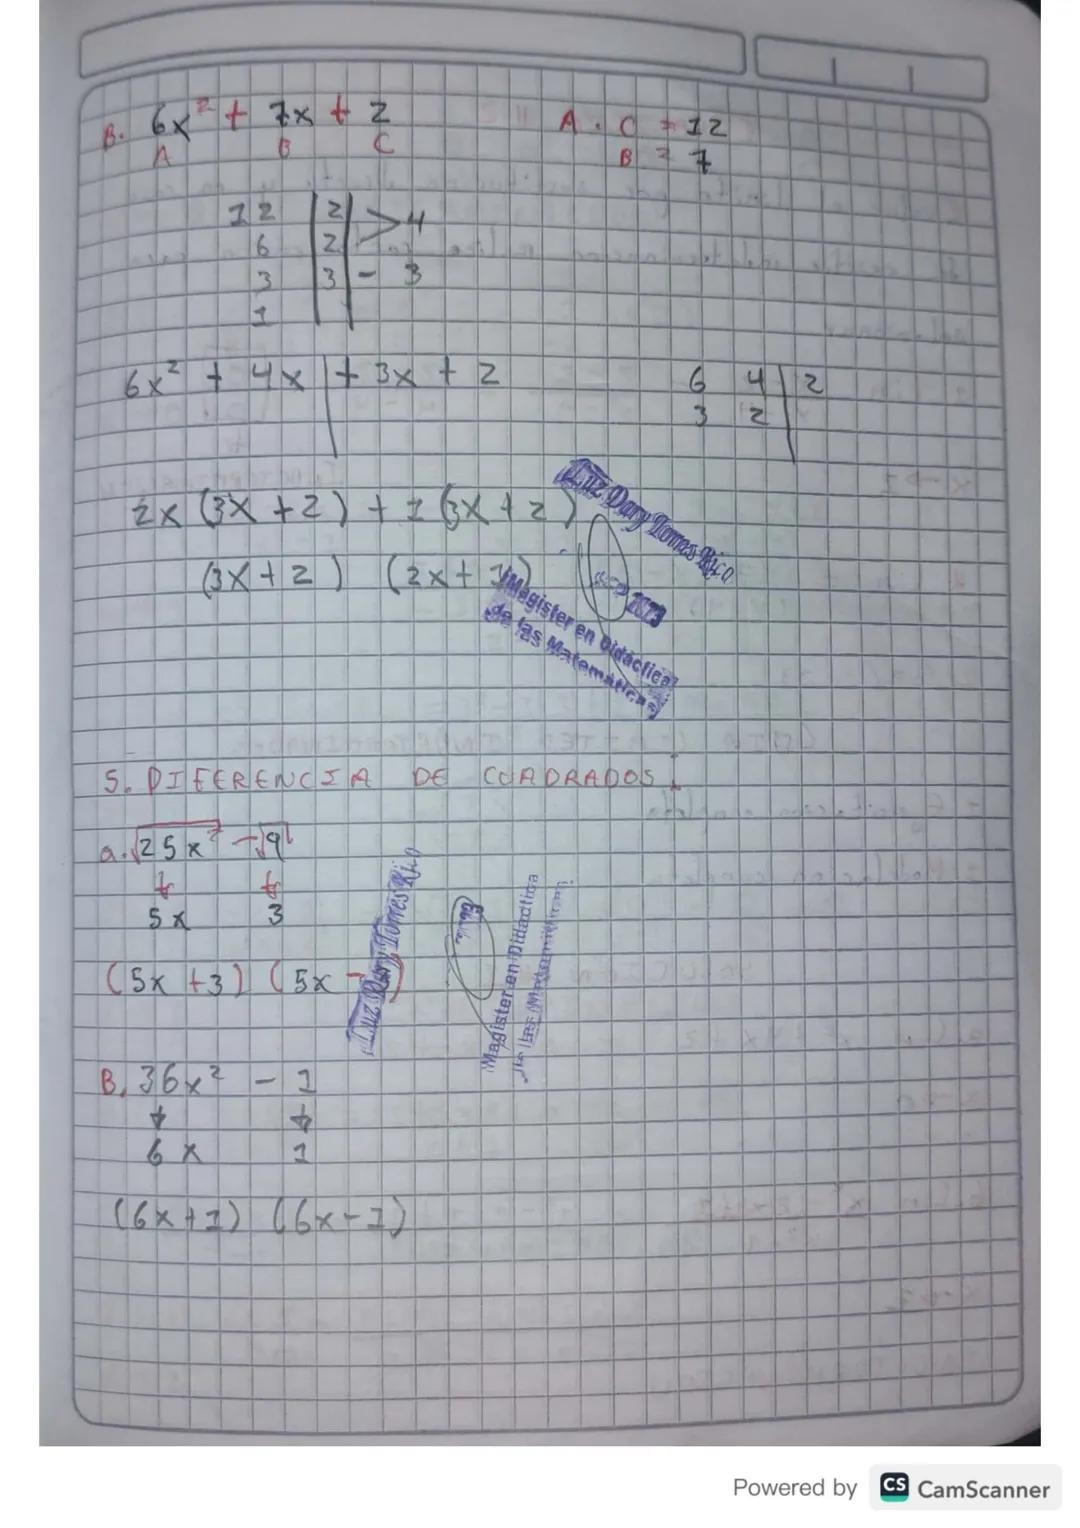 B. 6x² + 7x + 2
A B C
A · C = 12
B = 7
12 | 2 > 4
6 | 2
3 | 3 - 3
1
6x² + 4x | + 3x + 2
6 4 | 2
3 2
2x (3x + 2) + 1 (3x + 2)
(3x + 2) (2x + 1)
Luz Dary Torres Rico
2023
Magister en Didáctica
de las Matematicas
5. DIFERENCIA DE CUADRADOS:
a. √25x² - √9
5x 3
(5x + 3) (5x -
Luz Dary Torres Rico
Magister en Didactica
B. 36x² - 1
6x 1
(6x + 1) (6x - 1)
Powered by CS CamScanner